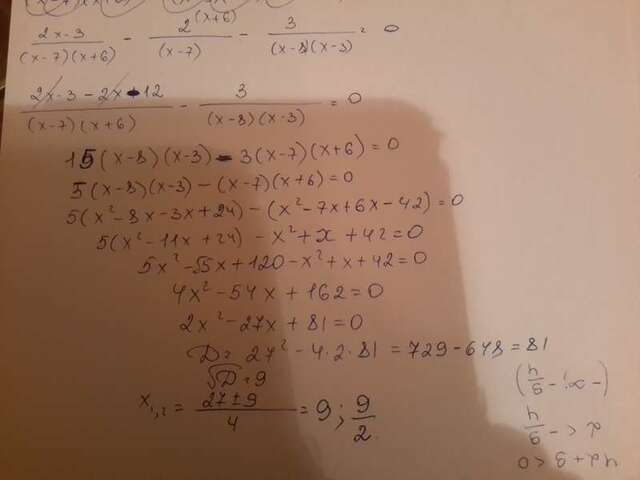 (2x-3)/((x-7)(x+6)) - 2^(x+6)/(x-7) - 3/((x-8)(x-3)) = 0
(2x-3-2x-12)/((x-7)(x+6)) - 3/((x-8)(x-3)) = 0
15(x-8)(x-3) - 3(x-7)(x+6) = 0
5(x-8)(x-3) - (x-7)(x+6) = 0
5(x²-8x-3x+24) - (x²-7x+6x-42) = 0
5(x²-11x+24) - x²+x+42=0
5x²-55x+120-x²+x+42=0
4x²-54x+162=0
2x²-27x+81=0
D= 27²-4·2·81 = 729-648 = 81
√D=9
x₁,₂ = (27±9)/4 = 9; 9/2